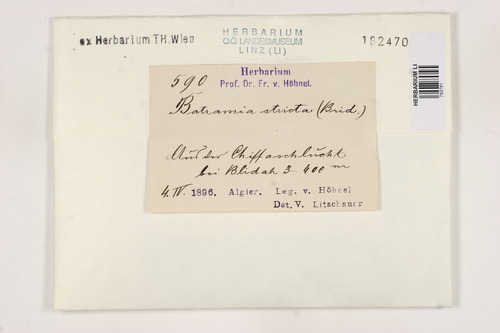 ex Herbarium TH.Wien
HERBARIUM
O.Ö. LANDESMUSEUM
LINZ (LI)
182470
HERBARIUM LI
590
Herbarium
Prof. Dr. Fr. v. Höhnel.
Batramia stricta (Brid.)
Aus der Chiffaschlucht
bei Blidah 3-400 m
4. IV. 1896. Algier. Leg. v. Höhnel
Det. V. Litschauer